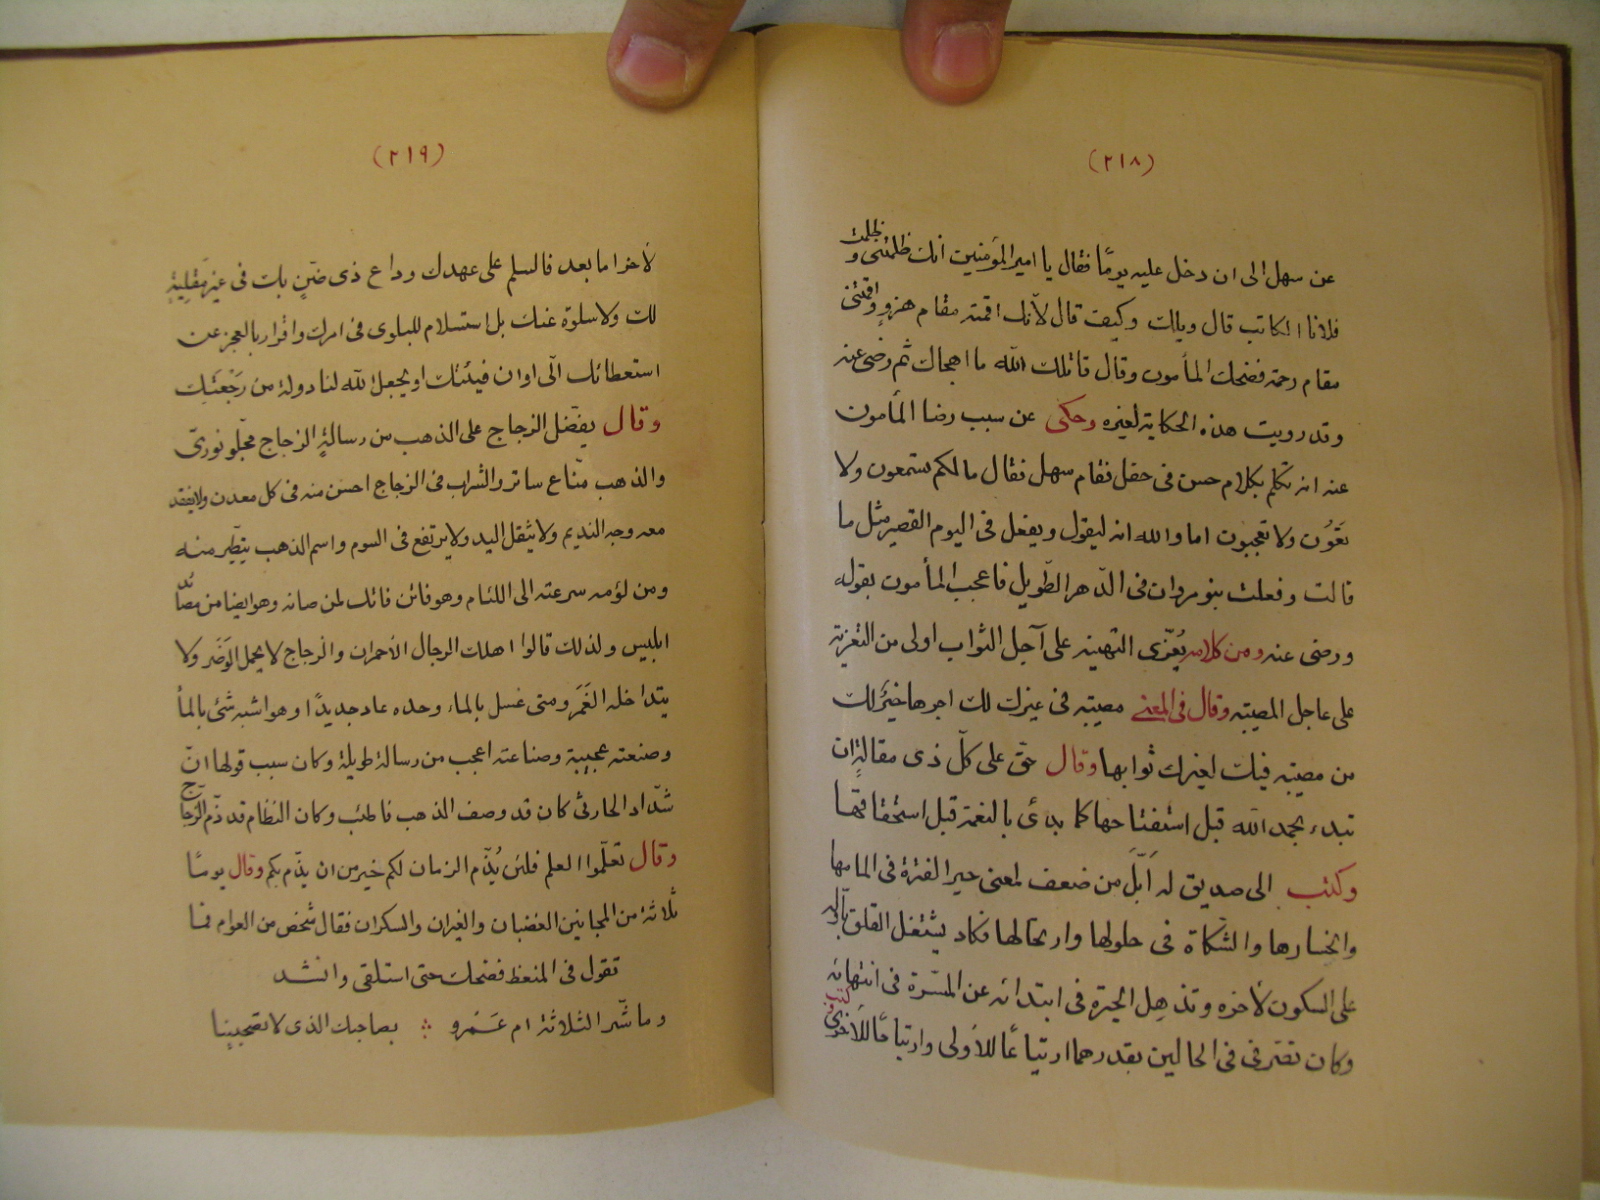 (٢١٨)
عن سهل الى ان دخل عليه يومًا فقال يا امير المؤمنين انك ظلمتنى وظلمت
فلانا الكاتب قال ويلك وكيف قال لأنك اقمته مقام هزوٍ واقمتنى
مقام رحمة فضحك المأمون وقال قاتلك الله ما اهجاك ثم رضى عنه
وقد رويت هذه الحكاية لغيره وحكى عن سبب رضا المأمون
عنه انه تكلم بكلام حسن فى حفل فقام سهل فقال مالكم تسمعون ولا
تعَوُن ولا تعجبون اما والله انه ليقول ويفعل فى اليوم القصير مثل ما
قالت وفعلت بنو مروان فى الدّهر الطّويل فاعجب المأمون بقوله
ورضى عنه ومن كلامه يُعَزّى التهنيه على آجل الثواب اولى من التعزية
على عاجل المصيبه وقال فى المعنى مصيبه فى غيرك لك اجرها خيرٌ لك
من مصيبه فيك لغيرك ثوابها وقال حقّ على كلّ ذى مقالةٍ ان
تبدء بحمد الله قبل استفتاحها كما بدئ بالنعمة قبل استحقاقها
وكتب الى صديق له اَبَلَّ من ضعف لمعنى حير الفترة فى المامها
وانحسارها والشكاة فى حلولها وارتحالها فكاد يشتغل القلق باوله
على السكون لآخره وتذهِل الحيرة فى ابتدائه عن المسرة فى انتهائه
وكان تصرفى فى الحالين بقدرهما ارتياعًا للأولى وارتياحًا للاخرى وكتب
(٢١٩)
لآخر اما بعد فالسلم على عهدك وداع ذى ضنٍّ بك فى غير مَقلِيةٍ
لك ولا سلوة عنك بل استسلام للبلوى فى امرك واقرار بالعجز عن
استعطافك الى اوان فيئتك او يجعل الله لنا دولة من رَجْعَتِك
وقال يفضّل الزجاج على الذهب من رسالةٍ الزجاج مجلو نورىّ
والذهب متاع ساتر والشراب فى الزجاج احسن منه فى كل معدن ولا يفقد
معه وجه النديم ولا يثقل اليد ولا يرتفع فى السوم واسم الذهب يتطير منه
ومن لؤمه سرعته الى اللئام وهو فاتن فاتك لمن صانه وهو ايضا من مصائد
ابليس ولذلك قالوا اهلك الرجال الاحمران والزجاج لا يحمل الوَضَر ولا
يتداخله الغَمَر ومتى غسل بالماء وحده عاد جديدًا وهو اشبه شئ بالمأ
وصنعته عجيبة وصناعته اعجب من رسالة طويلة وكان سبب قولها انّ
شدّاد الحارثى كان قد وصف الذهب فاطنب وكان النظام قد ذمّ الزجاج
وقال تعلّموا العلم فلئن يُذّم الزمان لكم خير من ان يذّم بكم وقال يومًا
ثلاثة من المجانين الغضبان والغيران والسكران فقال شخص من العوام فما
تقول فى المنعظ فضحك حتى استلقى وانشد
وما شّر الثلاثة ام عَمْرو ∴ بصاحبك الذى لا تصحبينا